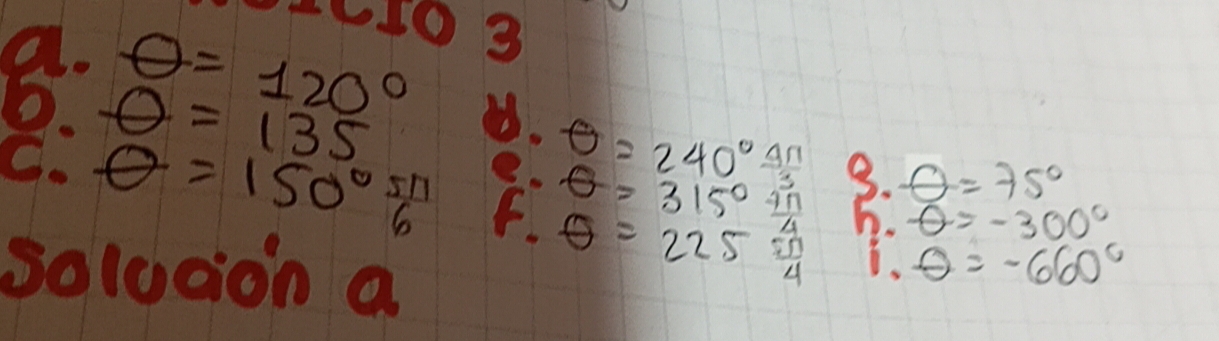 3
a. θ = 120°
b. θ = 135
c. θ = 150° 5π/6
d. θ = 240° 4π/3
e. θ = 315° 7π/4
f. θ = 225 5π/4
g. θ = 75°
h. θ = -300°
i. θ = -660°
Solución a